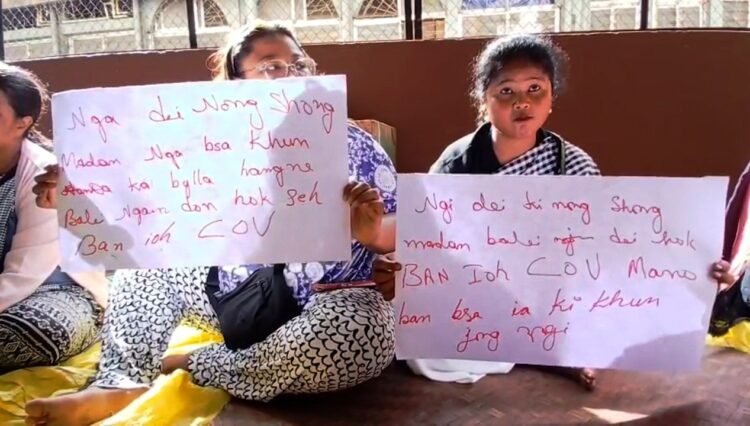 Nga dei Nong Shong
Madan Nga bsa Khun
ka bylla hangne
Balei Ngam don hok Seh
Ban ioh COV
Ngi dei ki nong Shong
madan balei ngim dei hok
BAN Ioh COV Mano
ban bsa ia ki Khun
jng ngi